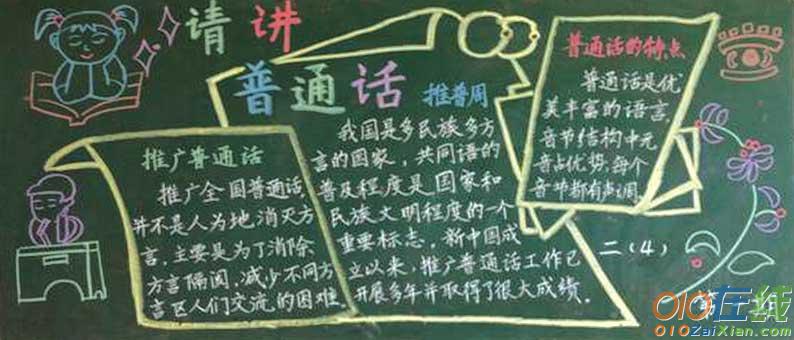 请讲
普通话
推普周
推广普通话
推广全国普通话,
并不是人为地消灭方
言,主要是为了消除
方言隔阂,减少不同方
言区人们交流的困难.
我国是多民族多方
言的国家,共同语的
普及程度是国家和
民族文明程度的一个
重要标志,新中国成
立以来,推广普通话工作已
开展多年并取得了很大成绩.
普通话的特点
普通话是优
美丰富的语言,
音节结构中元
音占优势,每个
音节都有声调.
二(4)
第
010在线
010ZaiXian.com